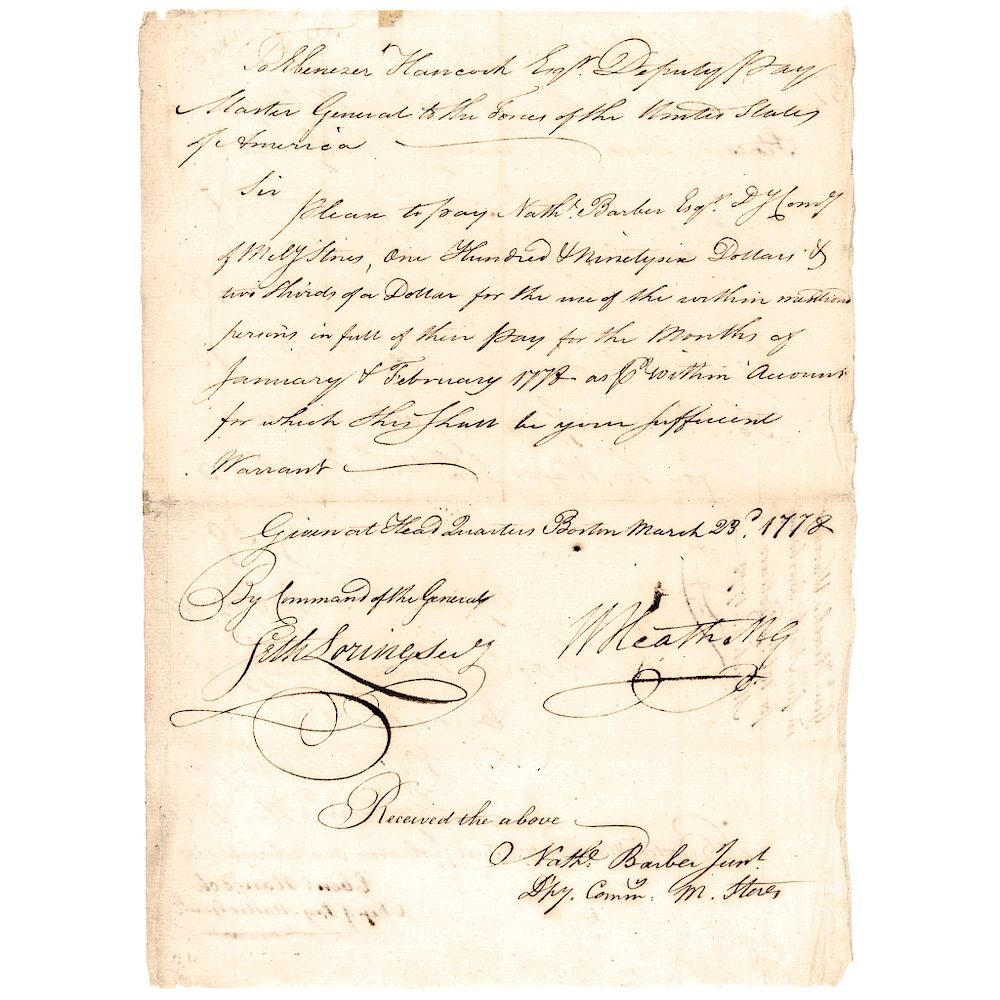 To Ebenezer Hancock Esqr. Deputy Pay
Master General to the Forces of the United States
of America
Sir
Please to pay Nathl. Barber Esqr. Dy Comy
of Mily Stores, One Hundred & Ninety six Dollars &
two thirds of a Dollar for the use of the within mentiond
persons in full of their Pay for the Months of
January & February 1778 as Pr within Account
for which this Shall be your sufficient
Warrant
Given at Head Quarters Boston March 23d. 1778
By Command of the General
Seth Loring Secy
W Heath MG
Received the above
Nathl. Barber Junr.
Dpy. Comm. M. Stores